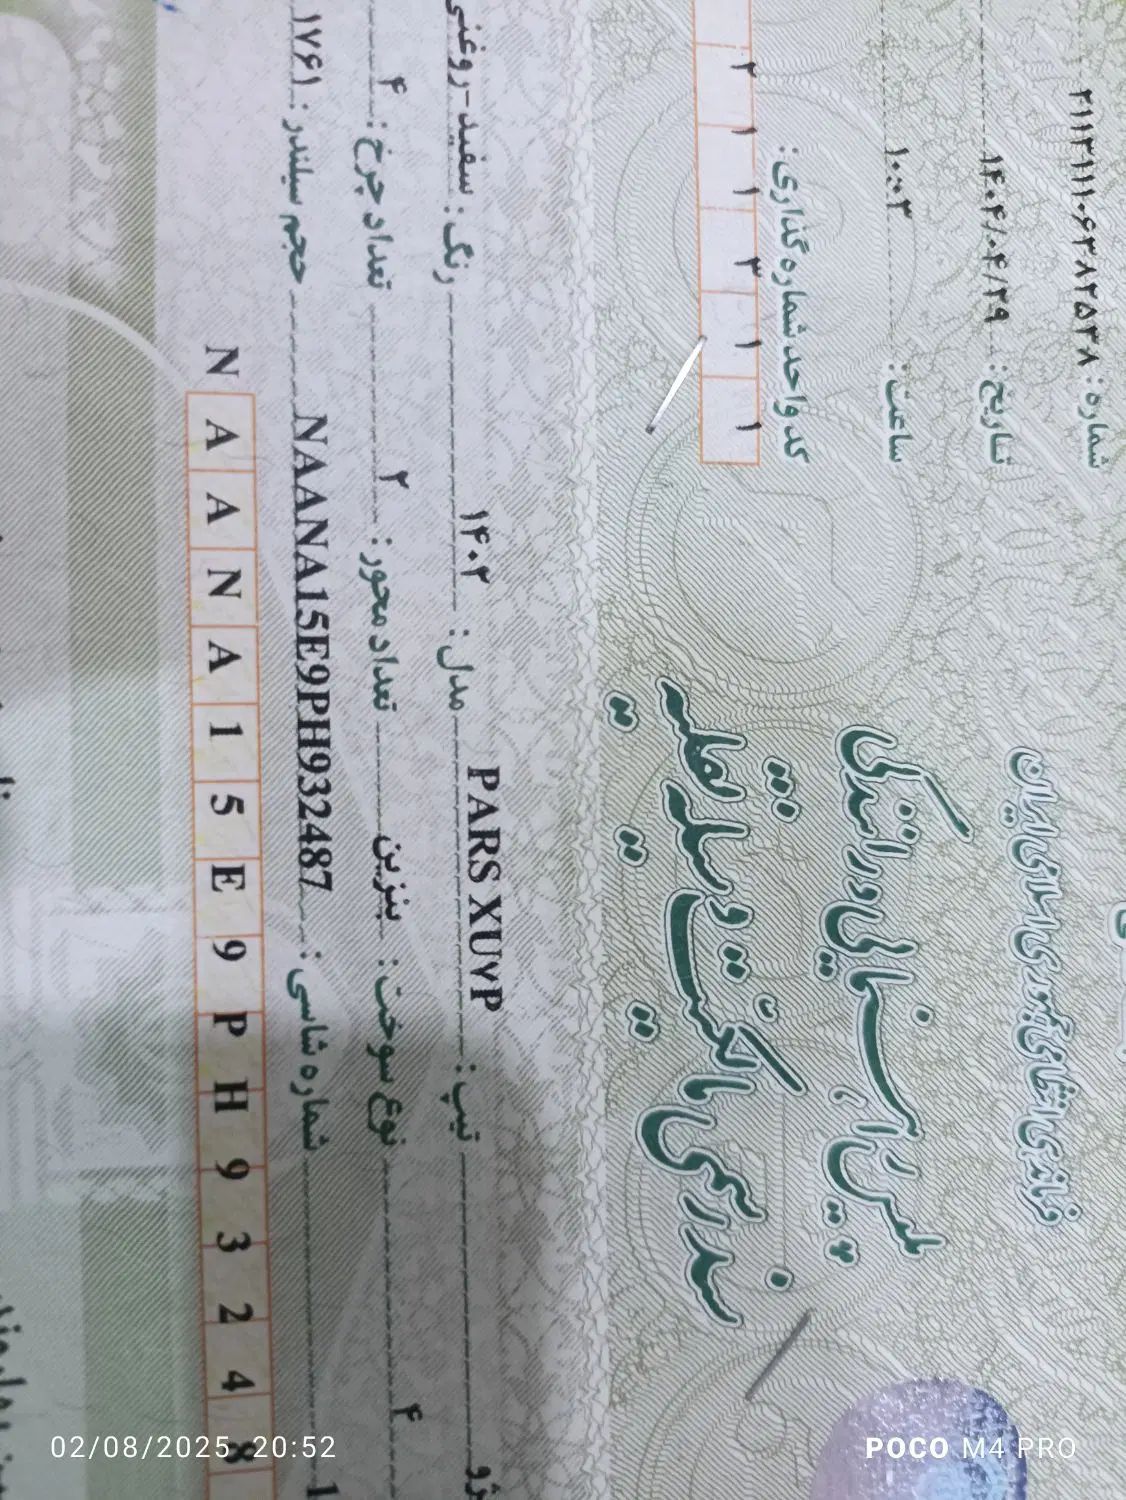 فرماندهی انتظامی جمهوری اسلامی ایران
پلیس راهنمایی و رانندگی
سند رسمی مالکیت وسیله نقلیه
شماره: ۲۱۱۳۱۱۱۰۶۳۸۲۵۳۸
تاریخ: ۱۴۰۴/۰۴/۲۹
ساعت: ۱۰:۰۳
کد واحد شماره گذاری:
۲ ۱ ۱ ۳ ۱ ۱
تیپ: PARS XU۷P مدل: ۱۴۰۲ رنگ: سفید-روغنی
۴ نوع سوخت: بنزین تعداد محور: ۲ تعداد چرخ: ۴
شماره شاسی: NAANA15E9PH932487 حجم سیلندر: ۱۷۶۱
N A A N A 1 5 E 9 P H 9 3 2 4 8
02/08/2025 20:52
POCO M4 PRO